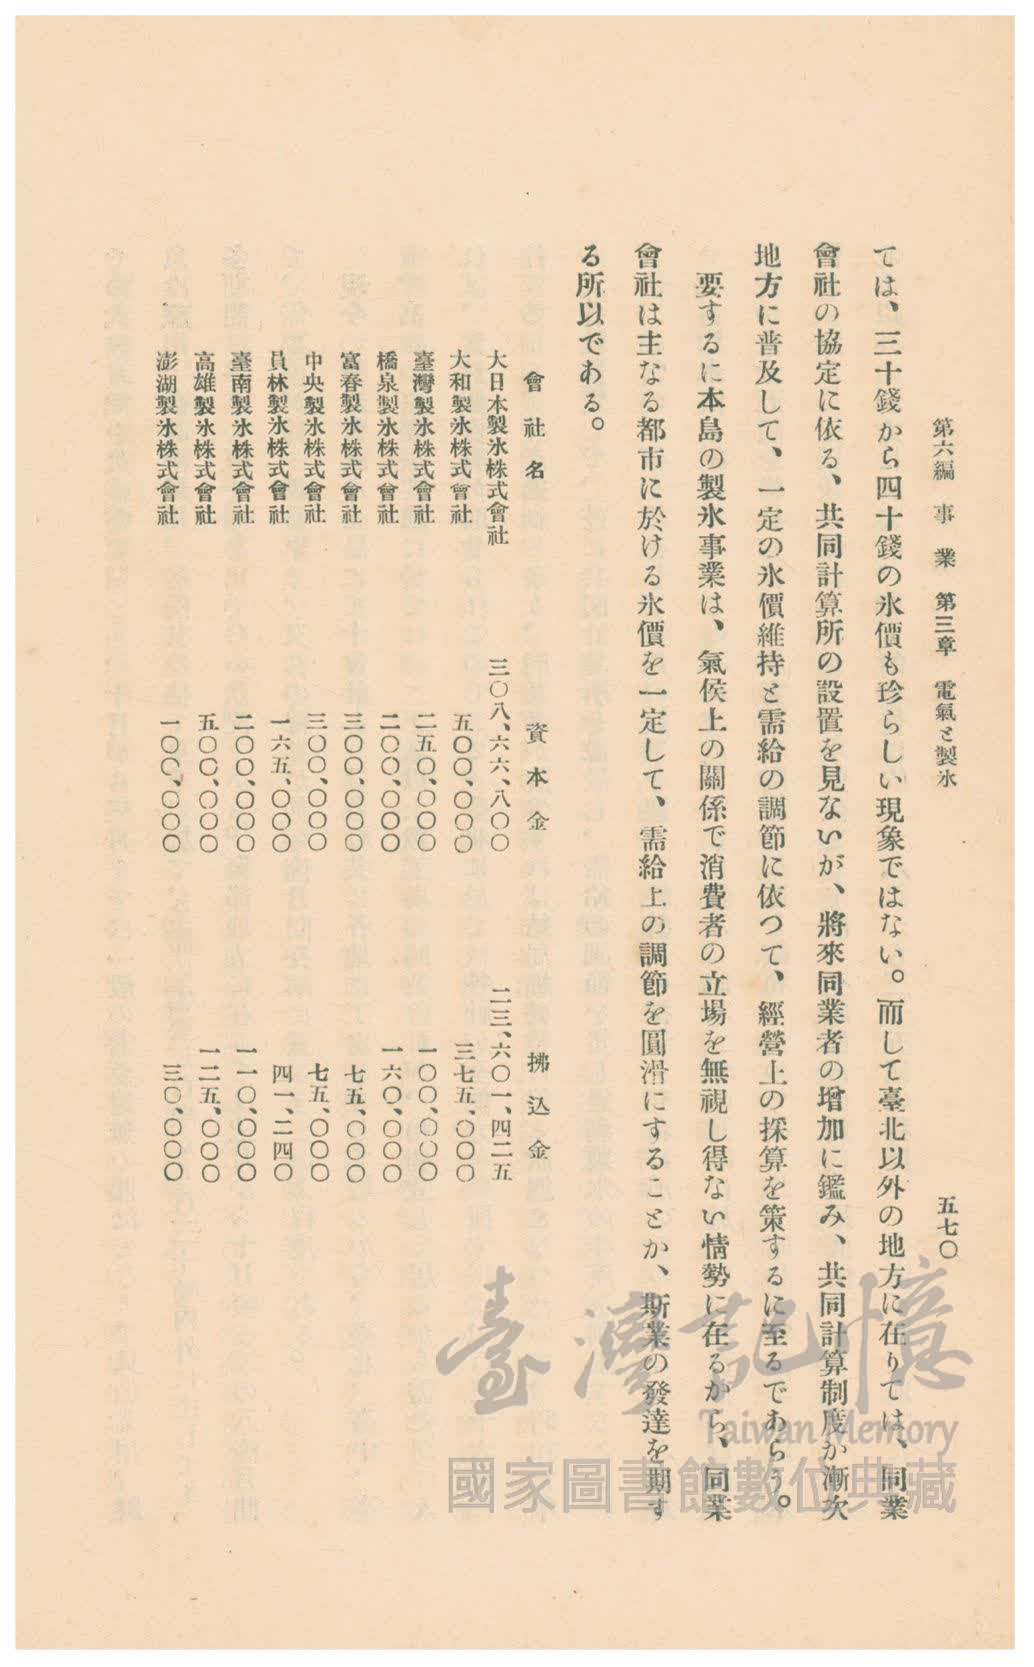 第六編 事業 第三章 電氣と製氷 五七〇
ては、三十錢から四十錢の氷價も珍らしい現象ではない。而して臺北以外の地方に在りては、同業
會社の協定に依る、共同計算所の設置を見ないが、將來同業者の增加に鑑み、共同計算制度か漸次
地方に普及して、一定の氷價維持と需給の調節に依つて、經營上の採算を策するに至るであらう。
要するに本島の製氷事業は、氣侯上の關係で消費者の立場を無視し得ない情勢に在るから、同業
會社は主なる都市に於ける氷價を一定して、需給上の調節を圓滑にすることか、斯業の發達を期す
る所以である。
會社名 資本金 拂込金
大日本製氷株式會社 三〇八、六六、八〇〇 二三、六〇一、四二五
大和製氷株式會社 五〇〇、〇〇〇 三七五、〇〇〇
臺灣製氷株式會社 二五〇、〇〇〇 一〇〇、〇〇〇
橋泉製氷株式會社 二〇〇、〇〇〇 一六〇、〇〇〇
富春製氷株式會社 三〇〇、〇〇〇 七五、〇〇〇
中央製氷株式會社 三〇〇、〇〇〇 七五、〇〇〇
員林製氷株式會社 一六五、〇〇〇 四一、二四〇
臺南製氷株式會社 二〇〇、〇〇〇 一一〇、〇〇〇
高雄製氷株式會社 五〇〇、〇〇〇 一二五、〇〇〇
澎湖製氷株式會社 一〇〇、〇〇〇 三〇、〇〇〇
臺灣記憶
Taiwan Memory
國家圖書館數位典藏